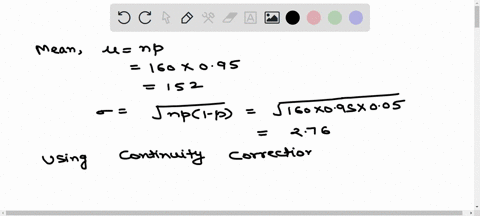 Mean, μ = np
= 160 × 0.95
= 152
σ = √np(1-p) = √160×0.95×0.05
= 2.76
Using Continuity Correction